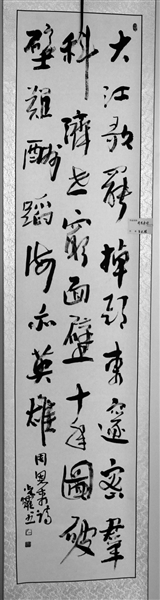 大江歌罷掉頭東邃密羣
科濟世窮面壁十年圖破
壁難酬蹈海亦英雄
周恩來詩